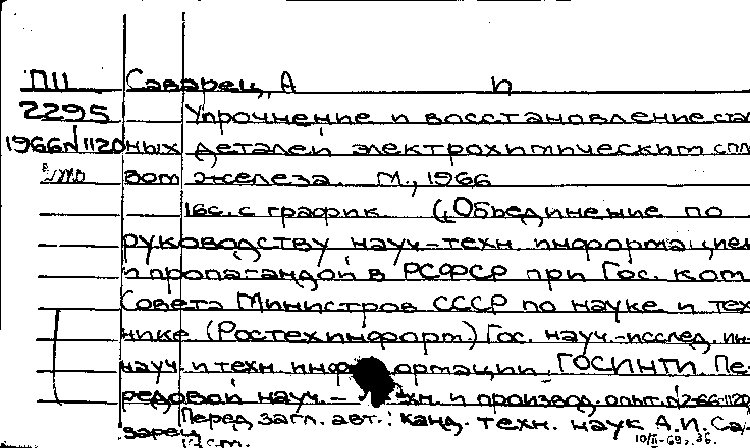 П11 Саварец, А п
2295 Упрочнение и восстановление сталь
1966/1120 ных деталей электрохимическим спла
вом железа. М., 1966
16с. с график. („Объединение по
руководству науч-техн. информацией
и пропагандой в РСФСР при Гос. ком.
Совета Министров СССР по науке и тех
нике (Ростехинформ.) Гос. науч.-исслед. ин-
науч. и техн. информации, ГОСИНТИ. Пе-
редовой науч.- техн. и производ. опыт. №2-66-1120
Перед загл. авт.: канд. техн. наук А.И. Са-
варец 10/II-69г.